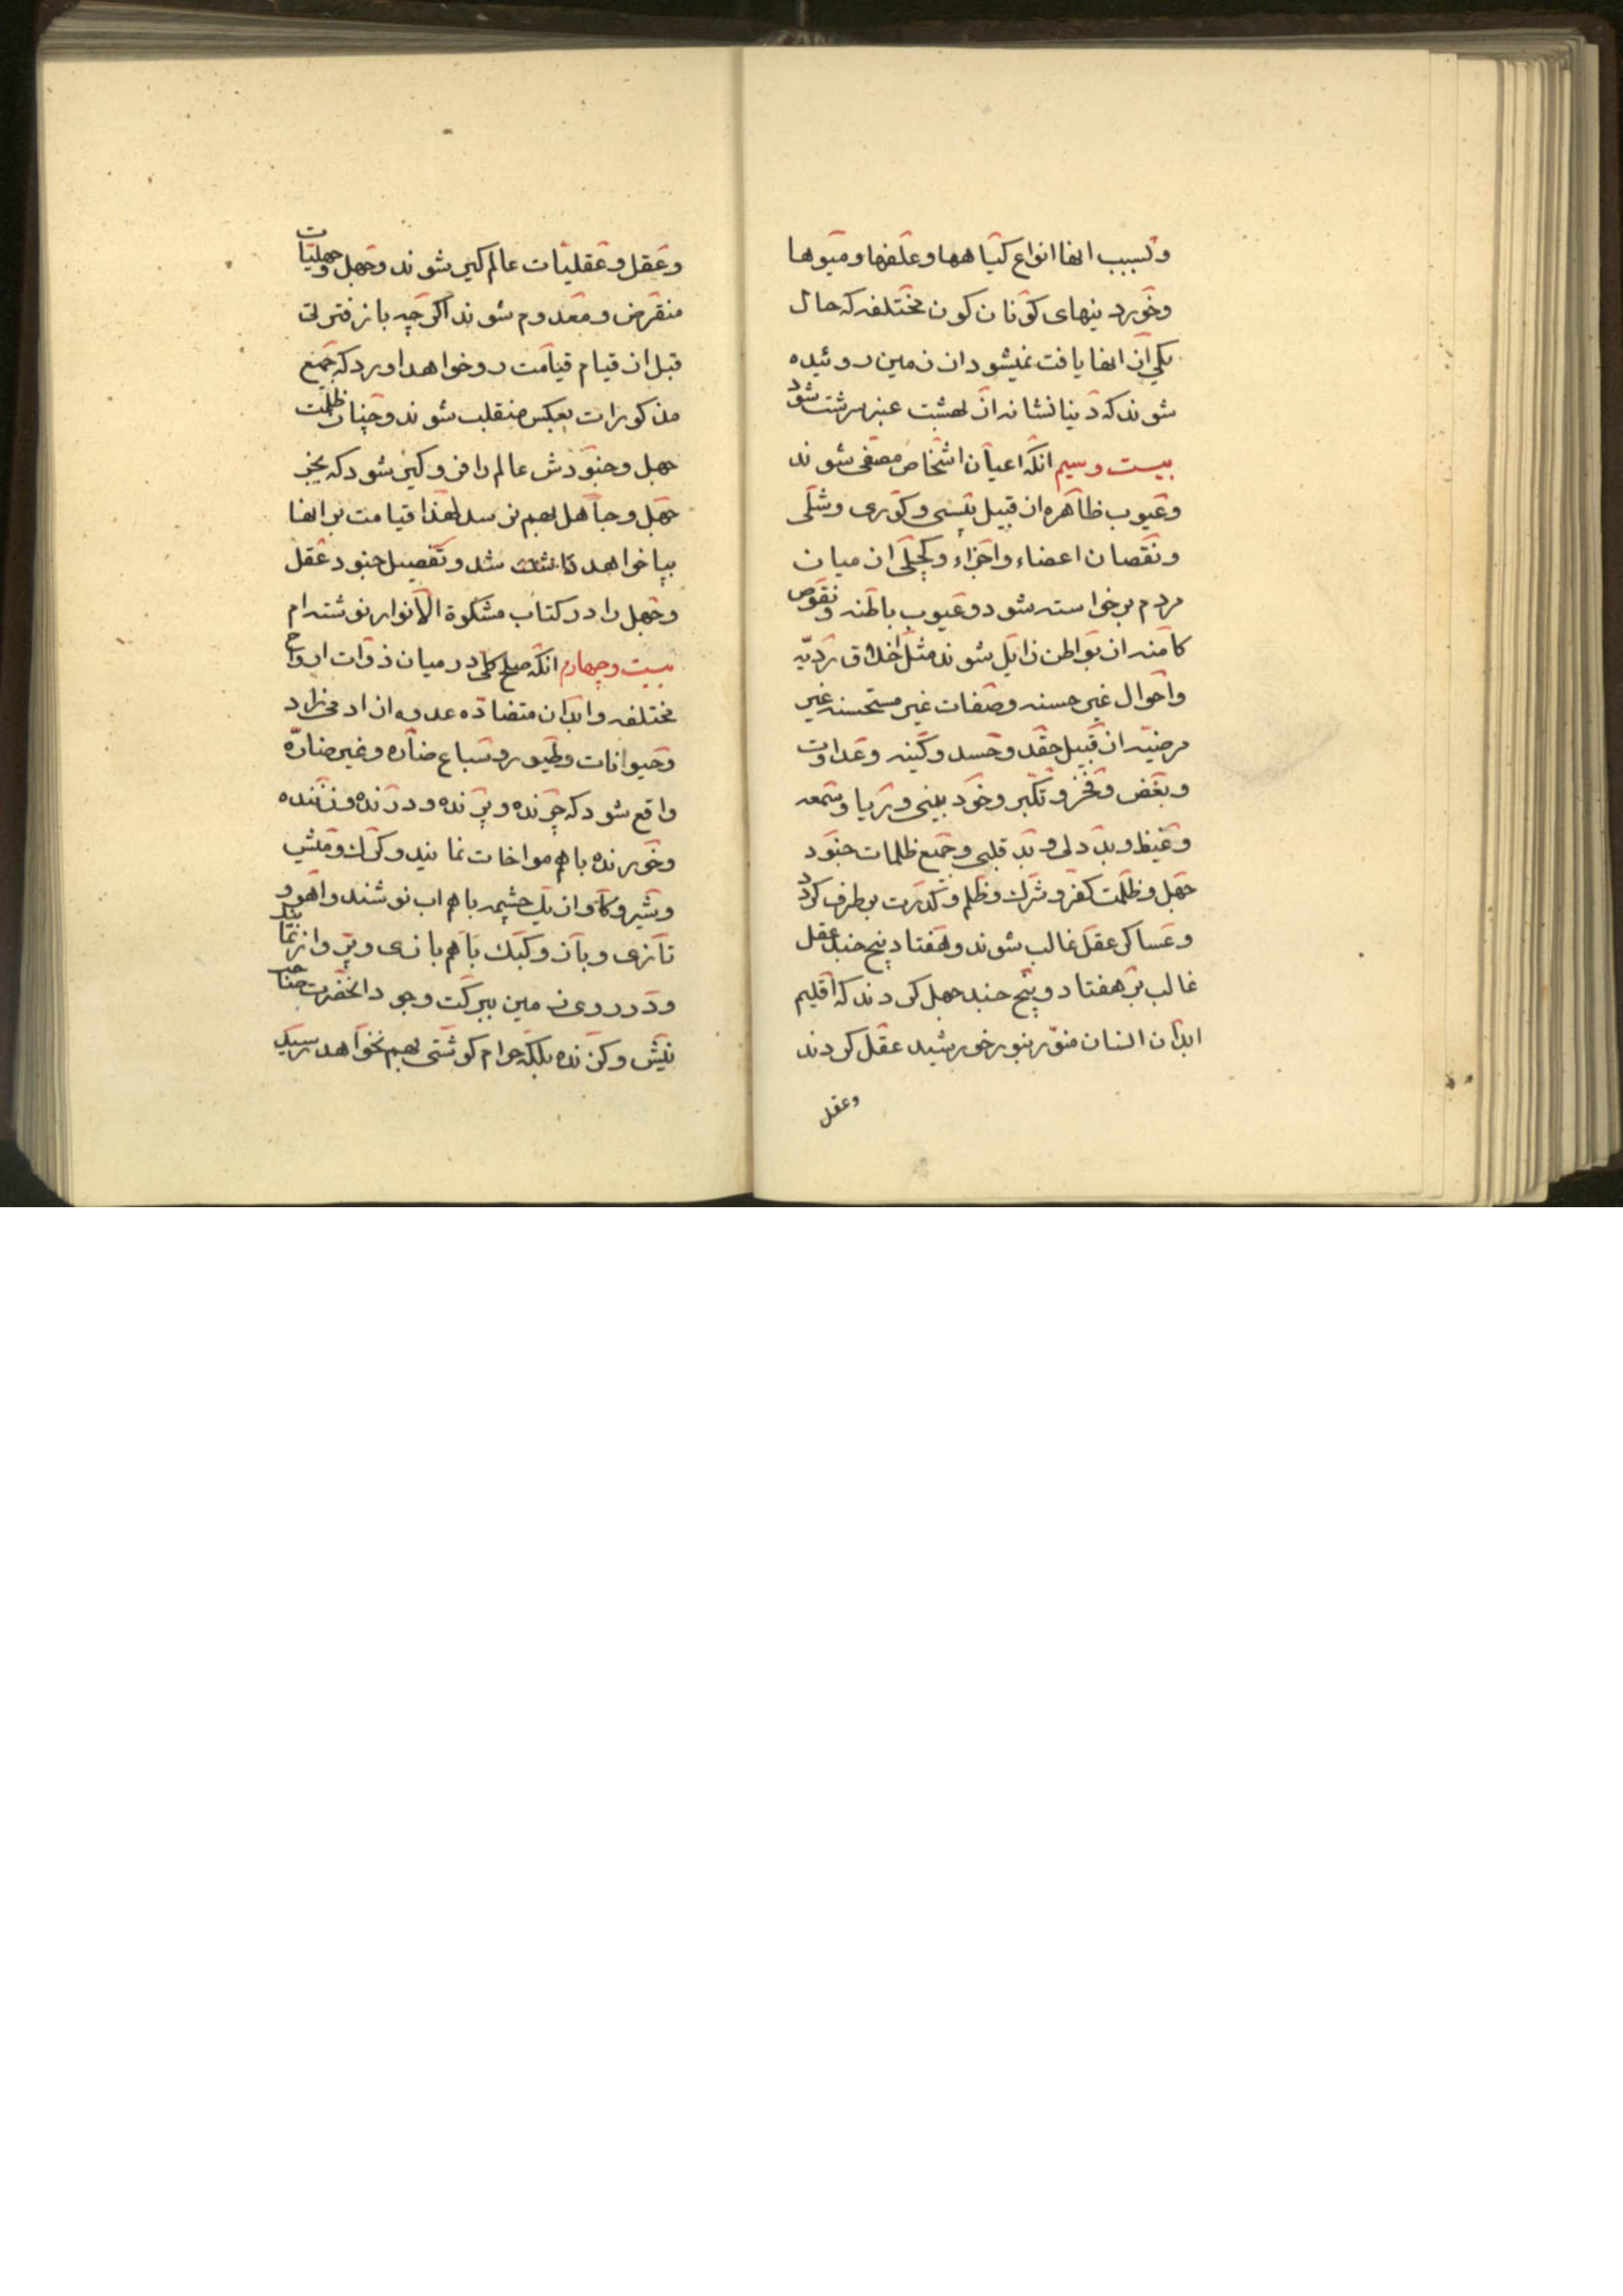 وبسبب انها انواع کیاهها وعلفها ومیوها
وخوردینهای کونان کون مختلفه که حال
یکی از انها یافت نمیشود از زمین روئیده
شوند که دنیا نشانه از بهشت عنبر سرشت شود
بیست وسیم انکه اعیان اشخاص مصفی شوند
وعیوب ظاهره از قبیل پیسی وکوری وشلی
ونقصان اعضاء واجزاء وکچلی از میان
مردم برخواسته شود وعیوب باطنه ونقوص
کامنه از بواطن زایل شوند مثل اخلاق ردیّه
واحوال غیر حسنه وصفات غیر مستحسنه غیر
مرضیّه از قبیل حقد وحسد وکینه وعداوت
وبغض وفخر وتکبر وخود بینی وریا وسمعه
وغیظ وبد دلی وبد قلبی وجمیع ظلمات جنود
جهل وظلمت کفر وشرک وظلم وکدرت برطرف کردد
وعساکر عقل غالب شوند وهفتاد پنج جند عقل
غالب بر هفتاد وپنج جند جهل کردند که اقلیم
ابدان انسان منوّر بنور خورشید عقل کردند
وعقل
وعقل وعقلیات عالم کیر شوند وجهل وجهلیّات
منقرض ومعدوم شوند اکرچه باز فترتی
قبل از قیام قیامت رو خواهد اورد که جمیع
مذکورات بعکس منقلب شوند وچنان ظلمت
جهل وجنودش عالم را فرو کیرد شود که بجز
جهل وجاهل بهم نرسد لهذا قیامت بر انها
بپا خواهد شد وتفصیل جنود عقل
وجهل را در کتاب مشکوة الانوار نوشته ام
بیست وچهارم انکه صلح کلی در میان ذوات ارواح
مختلفه وابدان متضادّه عدوه از ادمی زاد
وحیوانات وطیور وسباع ضارّه وغیر ضارّه
واقع شود که چرنده وپرنده ودرنده وزننده
وخورنده باهم مواخات نمایند وکرک ومیش
وشیر وکاو از یک چشمه باهم اب نوشند واهو و
تازی وباز وکبک باهم بازی وپرواز نمایند
ودر روی زمین ببرکت وجود انحضرت صاحب
نیش وکزنده بلکه حرام کوشتی بهم نخواهد رسید